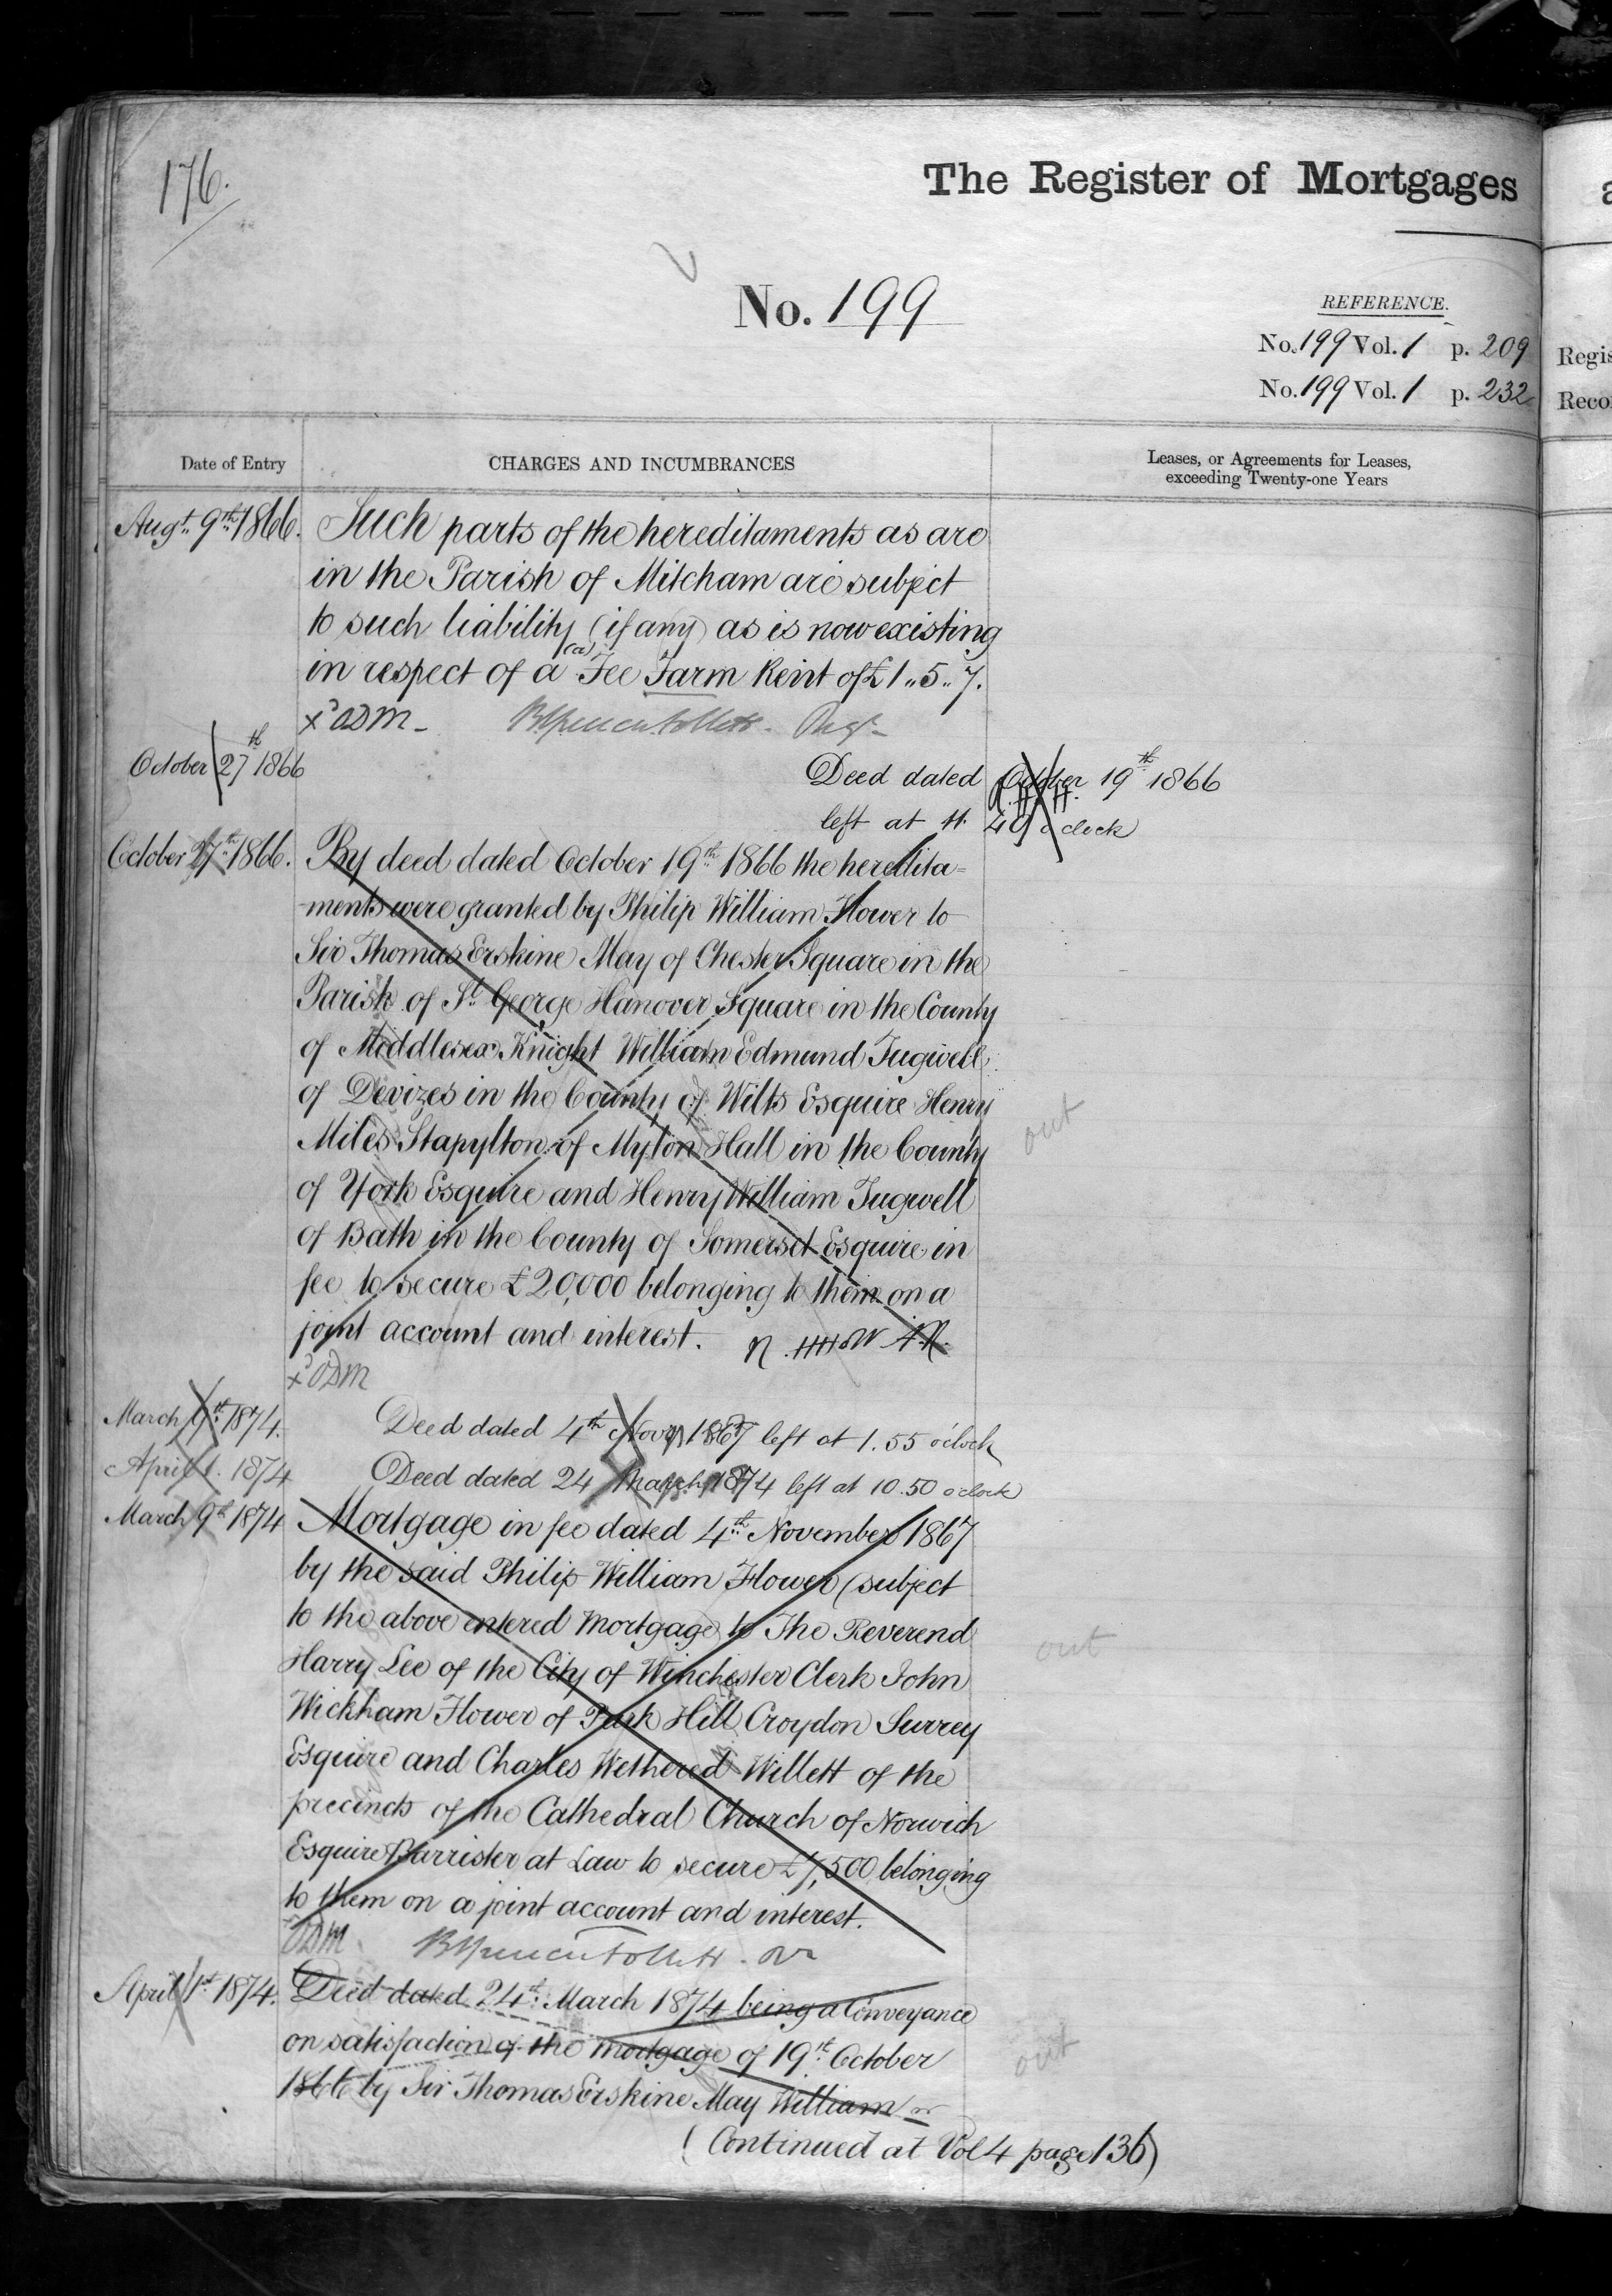 176.
The Register of Mortgages
No. 199
REFERENCE.
No. 199 Vol. 1 p. 209
No. 199 Vol. 1 p. 232
Regis
Reco
Date of Entry
CHARGES AND INCUMBRANCES
Leases, or Agreements for Leases,
exceeding Twenty-one Years
Augt. 9th 1866. Such parts of the hereditaments as are
in the Parish of Mitcham are subject
to such liability (if any) as is now existing
in respect of a (a) Fee Farm Rent of £1..5..7.
xd ODM
October 27th 1866 Deed dated October 19th 1866
left at 11.40 o'clock
October 27th 1866. By deed dated October 19th 1866 the heredita=
-ments were granted by Philip William Flower to
Sir Thomas Erskine May of Chester Square in the
Parish of St. George Hanover Square in the County
of Middlesex Knight William Edmund Tugwell
of Devizes in the County of Wilts Esquire Henry
Miles Stapylton of Myton Hall in the County
of York Esquire and Henry William Tugwell
of Bath in the County of Somerset Esquire in
fee to secure £20,000 belonging to them on a
joint account and interest.
xd ODM
out
March 9th 1874. Deed dated 4th Novr. 1867 left at 1.55 o'clock
April 1. 1874 Deed dated 24 March 1874 left at 10.50 o'clock
March 9th 1874 Mortgage in fee dated 4th November 1867
by the said Philip William Flower (subject
to the above entered mortgage) to The Reverend
Harry Lee of the City of Winchester Clerk John
Wickham Flower of Park Hill Croydon Surrey
Esquire and Charles Wethered Willett of the
precincts of the Cathedral Church of Norwich
Esquire Barrister at Law to secure £7,500 belonging
to them on a joint account and interest.
ODM
out
April 1st 1874. Deed dated 24th March 1874 being a Conveyance
on satisfaction of the mortgage of 19th October
1866 by Sir Thomas Erskine May William
out
(Continued at Vol 4 page 136)